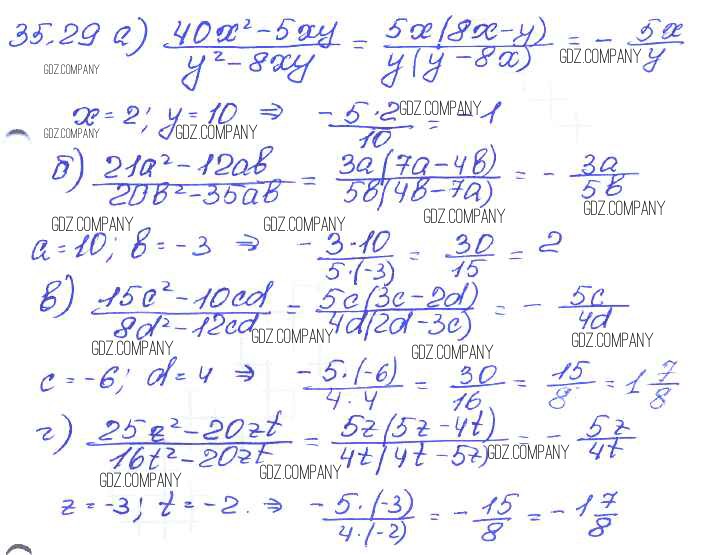 35.29 а) (40x² - 5xy)/(y² - 8xy) = 5x(8x - y)/(y(y - 8x)) = - 5x/y
GDZ.COMPANY GDZ.COMPANY
x = 2; y = 10 ⇒ - (5·2)/10 = -1
GDZ.COMPANY GDZ.COMPANY GDZ.COMPANY
б) (21a² - 12ab)/(20b² - 35ab) = 3a(7a - 4b)/(5b(4b - 7a)) = - 3a/5b
GDZ.COMPANY GDZ.COMPANY GDZ.COMPANY GDZ.COMPANY
a = 10; b = -3 ⇒ - (3·10)/(5·(-3)) = 30/15 = 2
в) (15c² - 10cd)/(8d² - 12cd) = 5c(3c - 2d)/(4d(2d - 3c)) = - 5c/4d
GDZ.COMPANY GDZ.COMPANY GDZ.COMPANY GDZ.COMPANY
c = -6; d = 4 ⇒ - (5·(-6))/(4·4) = 30/16 = 15/8 = 1 7/8
г) (25z² - 20zt)/(16t² - 20zt) = 5z(5z - 4t)/(4t(4t - 5z)) = - 5z/4t
GDZ.COMPANY GDZ.COMPANY GDZ.COMPANY
z = -3; t = -2. ⇒ - (5·(-3))/(4·(-2)) = - 15/8 = -1 7/8